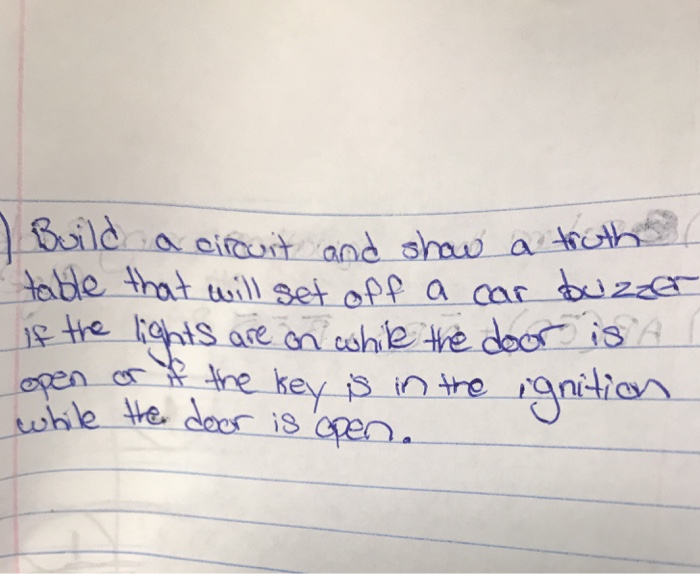 ) Build a circuit and show a truth
table that will set off a car buzzer
if the lights are on while the door is
open or if the key is in the ignition
while the door is open.